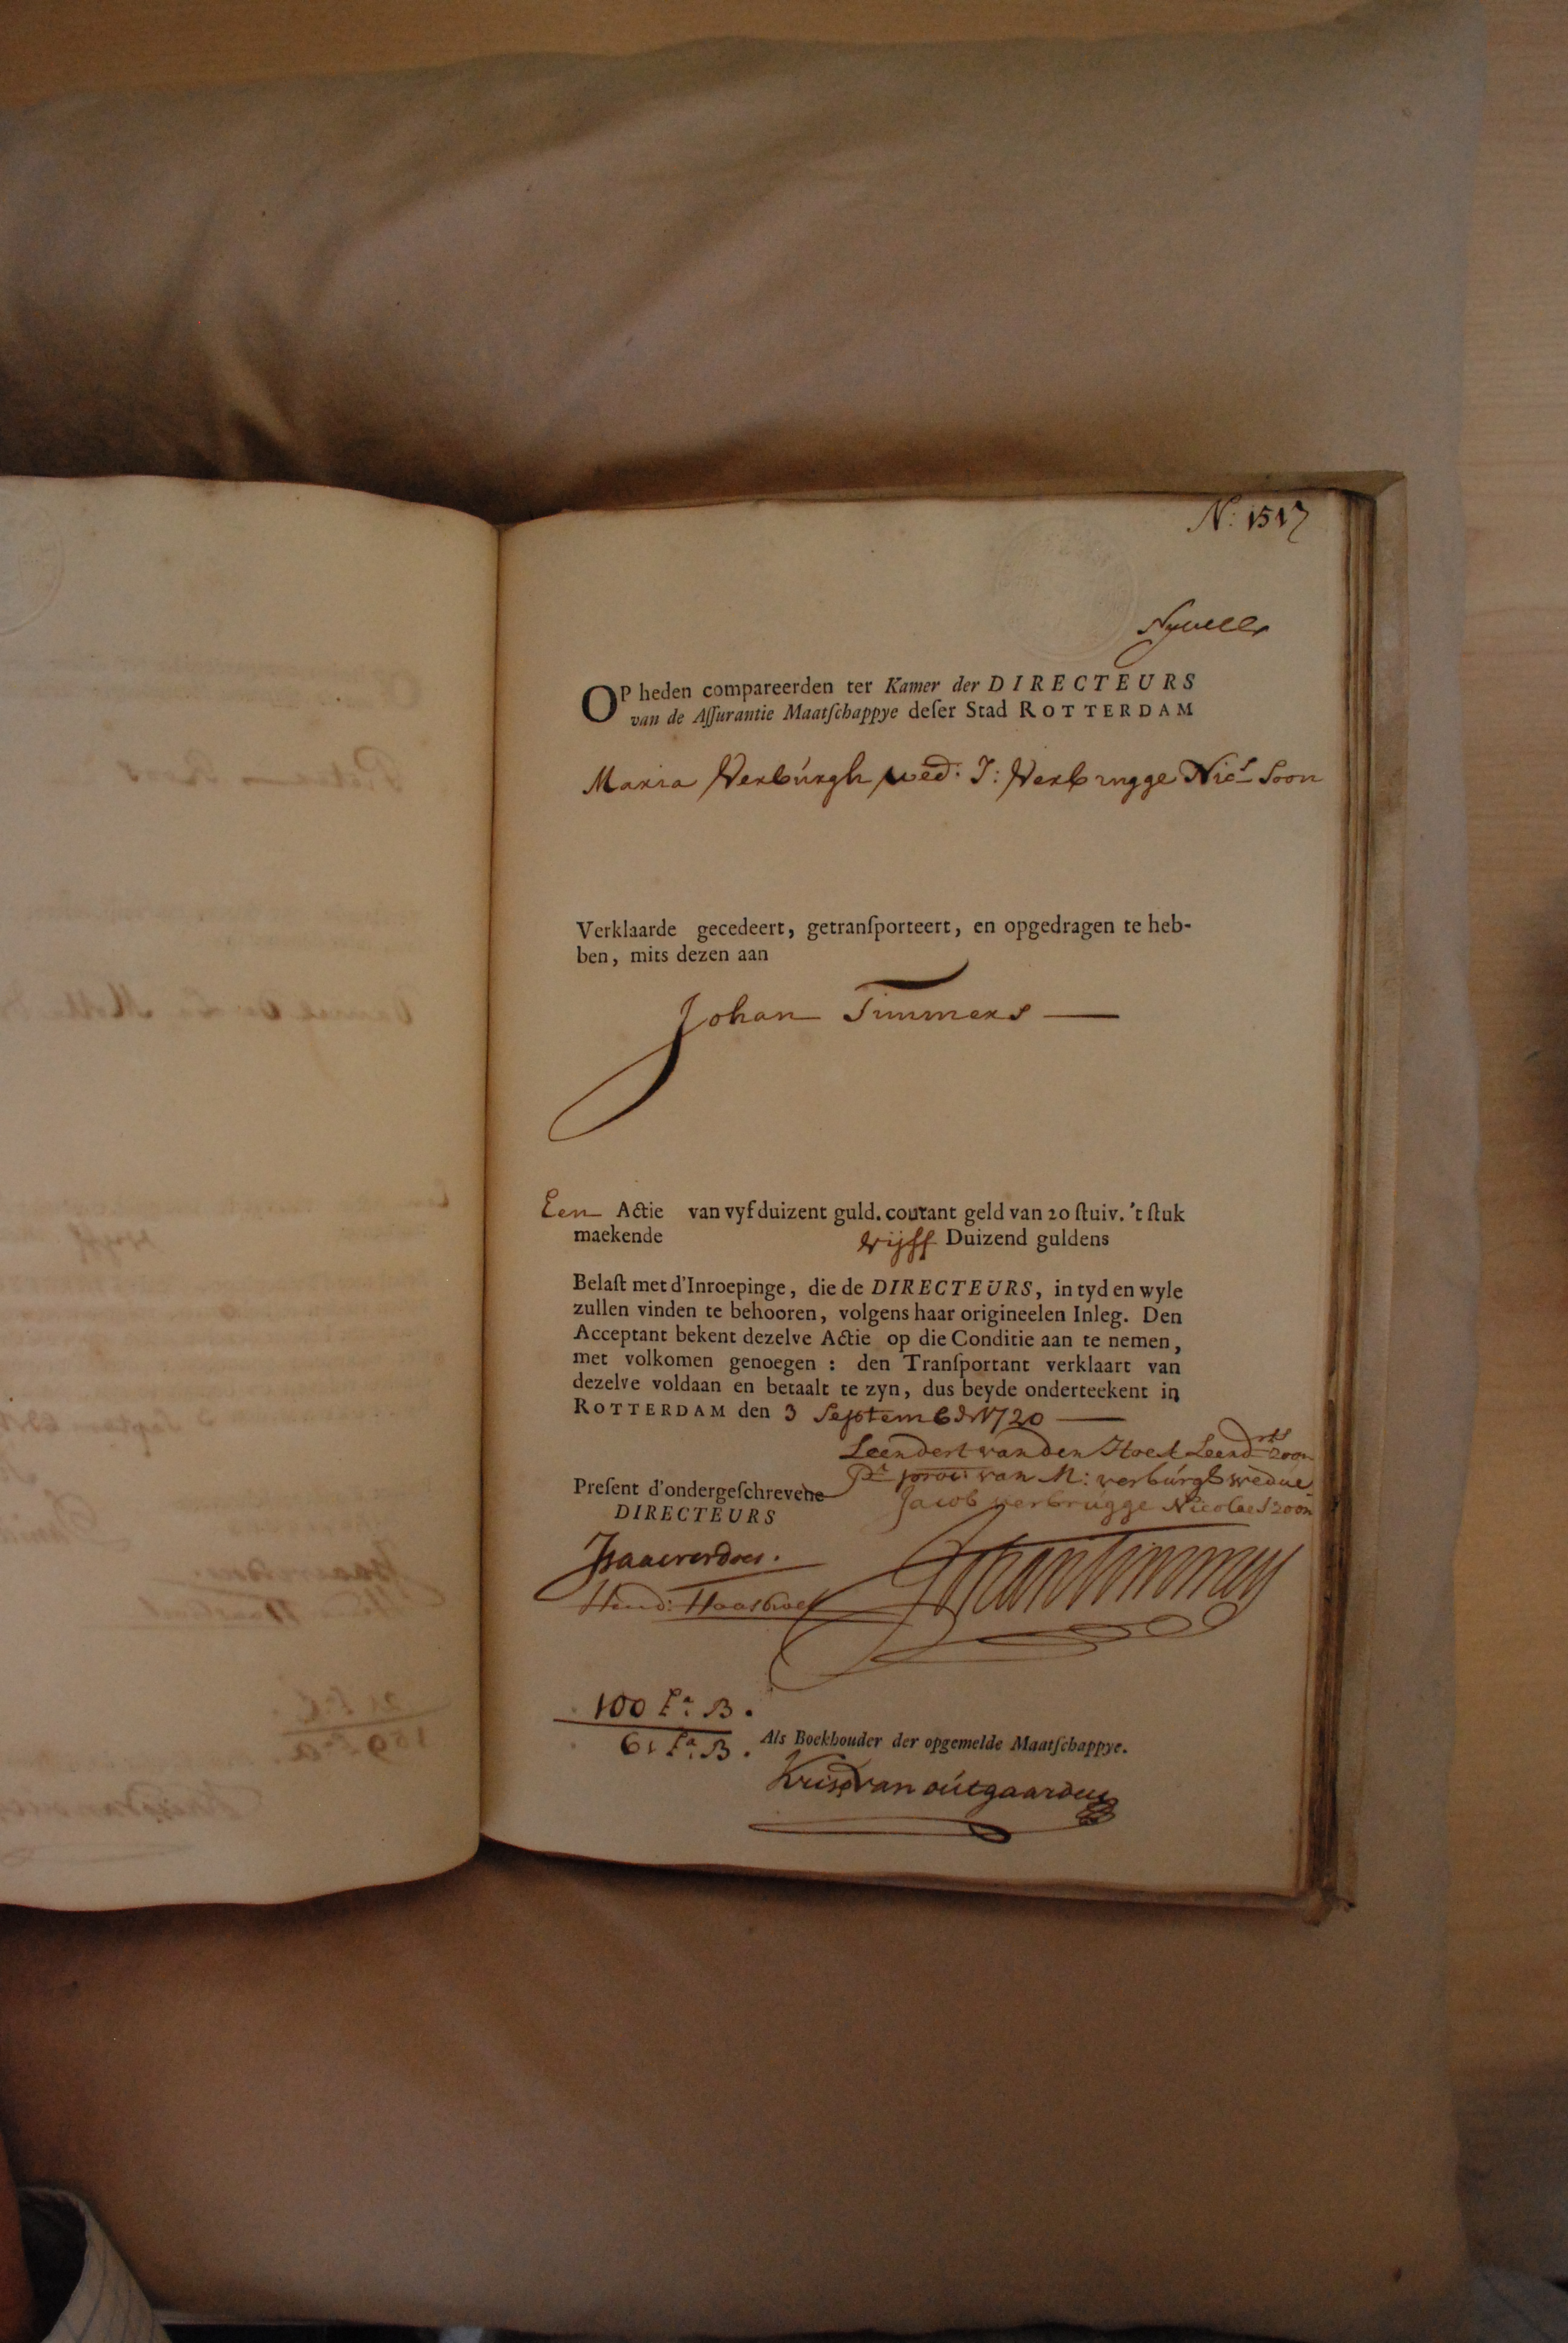 N: 1517
OP heden compareerden ter Kamer der DIRECTEURS
van de Aſſurantie Maatſchappye deſer Stad ROTTERDAM
Maria Verbúrgh wed: J: Verbrugge Nics Soon
Verklaarde gecedeert, getranſporteert, en opgedragen te heb-
ben, mits dezen aan
Johan Timmers
Een Actie van vyf duizent guld. courant geld van 20 ſtuiv. 't ſtuk
maekende vijff Duizend guldens
Belaſt met d'Inroepinge, die de DIRECTEURS, in tyd en wyle
zullen vinden te behooren, volgens haar origineelen Inleg. Den
Acceptant bekent dezelve Actie op die Conditie aan te nemen,
met volkomen genoegen : den Tranſportant verklaart van
dezelve voldaan en betaalt te zyn, dus beyde onderteekent in
ROTTERDAM den 3 September 1720
Leendert van den Hoek Leendrts zoon
Pr procu van M: verbúrgh wedue
Jacob verbrúgge Nicolaes zoon
Preſent d'ondergeſchrevene
DIRECTEURS
Johan Timmers
100 La: B.
61 La: B.
Als Boekhouder der opgemelde Maatſchappye.
Kris van oútgaarden